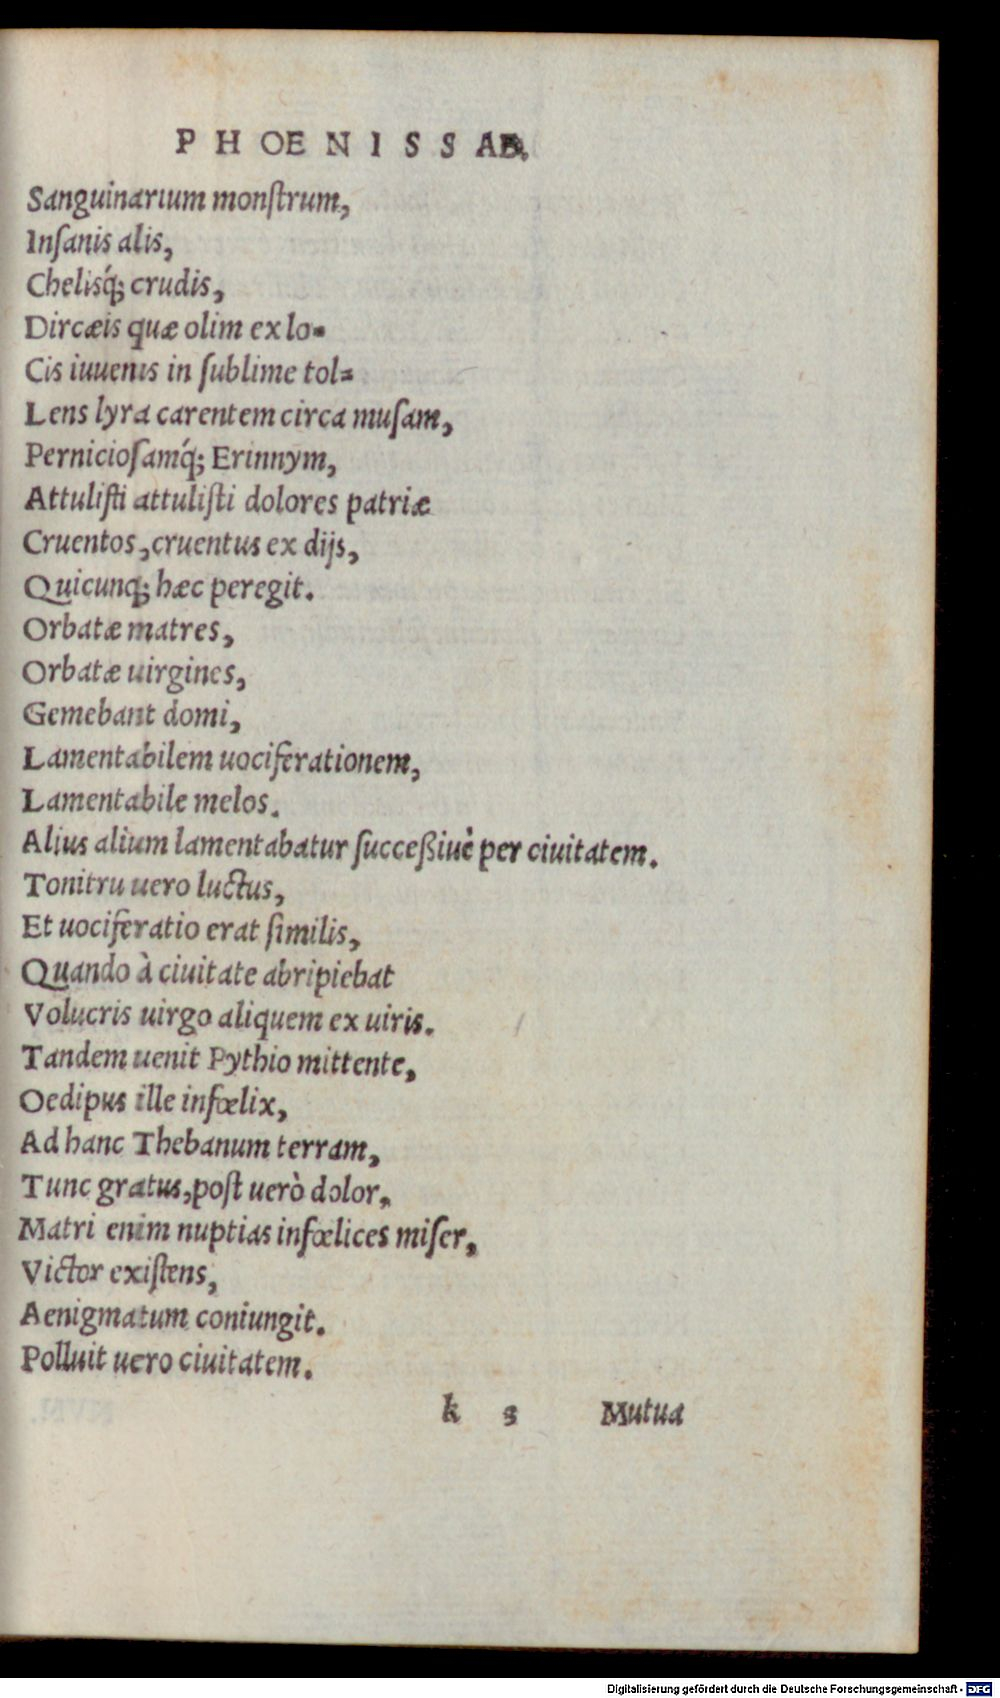 PHOENISSAE.
Sanguinarium monſtrum,
Inſanis alis,
Chelisq́; crudis,
Dircæis quæ olim ex lo=
Cis iuuenis in ſublime tol=
Lens lyra carentem circa muſam,
Pernicioſamq́; Erinnym,
Attuliſti attuliſti dolores patriæ
Cruentos, cruentus ex dijs,
Quicunq; hæc peregit.
Orbatæ matres,
Orbatæ uirgines,
Gemebant domi,
Lamentabilem uociferationem,
Lamentabile melos.
Alius alium lamentabatur ſucceßiuè per ciuitatem.
Tonitru uero luctus,
Et uociferatio erat ſimilis,
Quando à ciuitate abripiebat
Volucris uirgo aliquem ex uiris.
Tandem uenit Pythio mittente,
Oedipus ille infœlix,
Ad hanc Thebanum terram,
Tunc gratus, poſt uerò dolor,
Matri enim nuptias infœlices miſer,
Victor exiſtens,
Aenigmatum coniungit.
Polluit uero ciuitatem.
k s Mutua
Digitalisierung gefördert durch die Deutsche Forschungsgemeinschaft - DFG